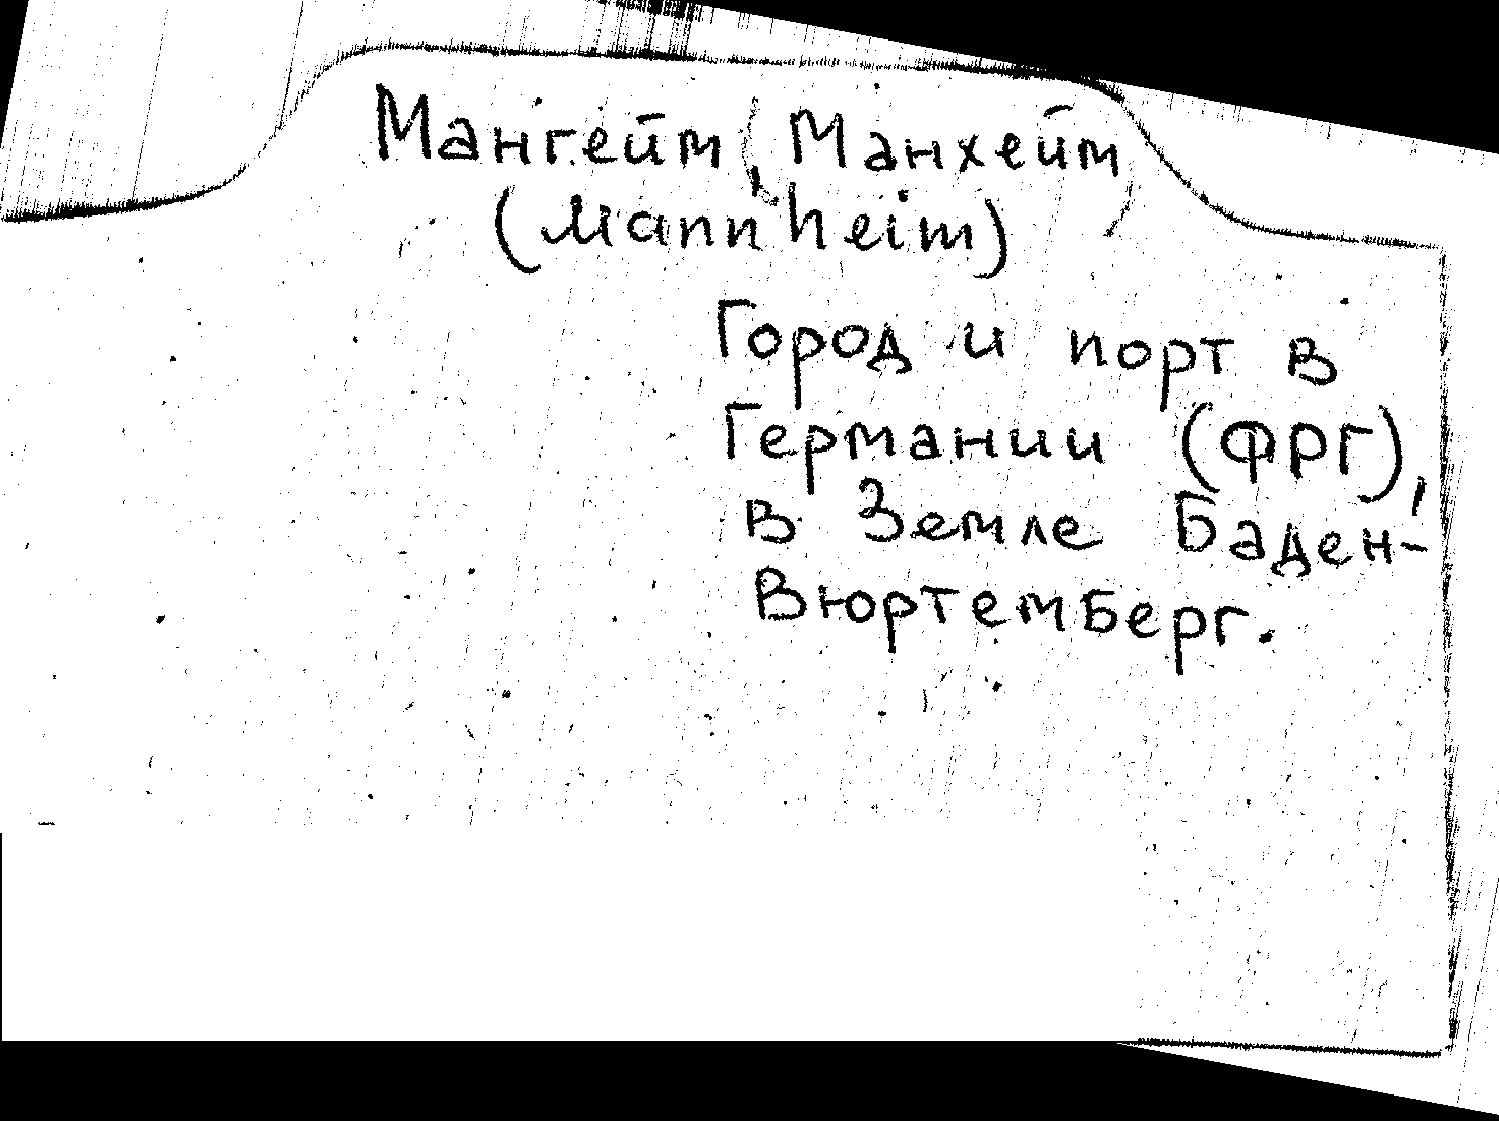 Мангейм, Манхейм
(Mannheim)
Город и порт в
Германии (ФРГ),
в Земле Баден-
Вюртемберг.